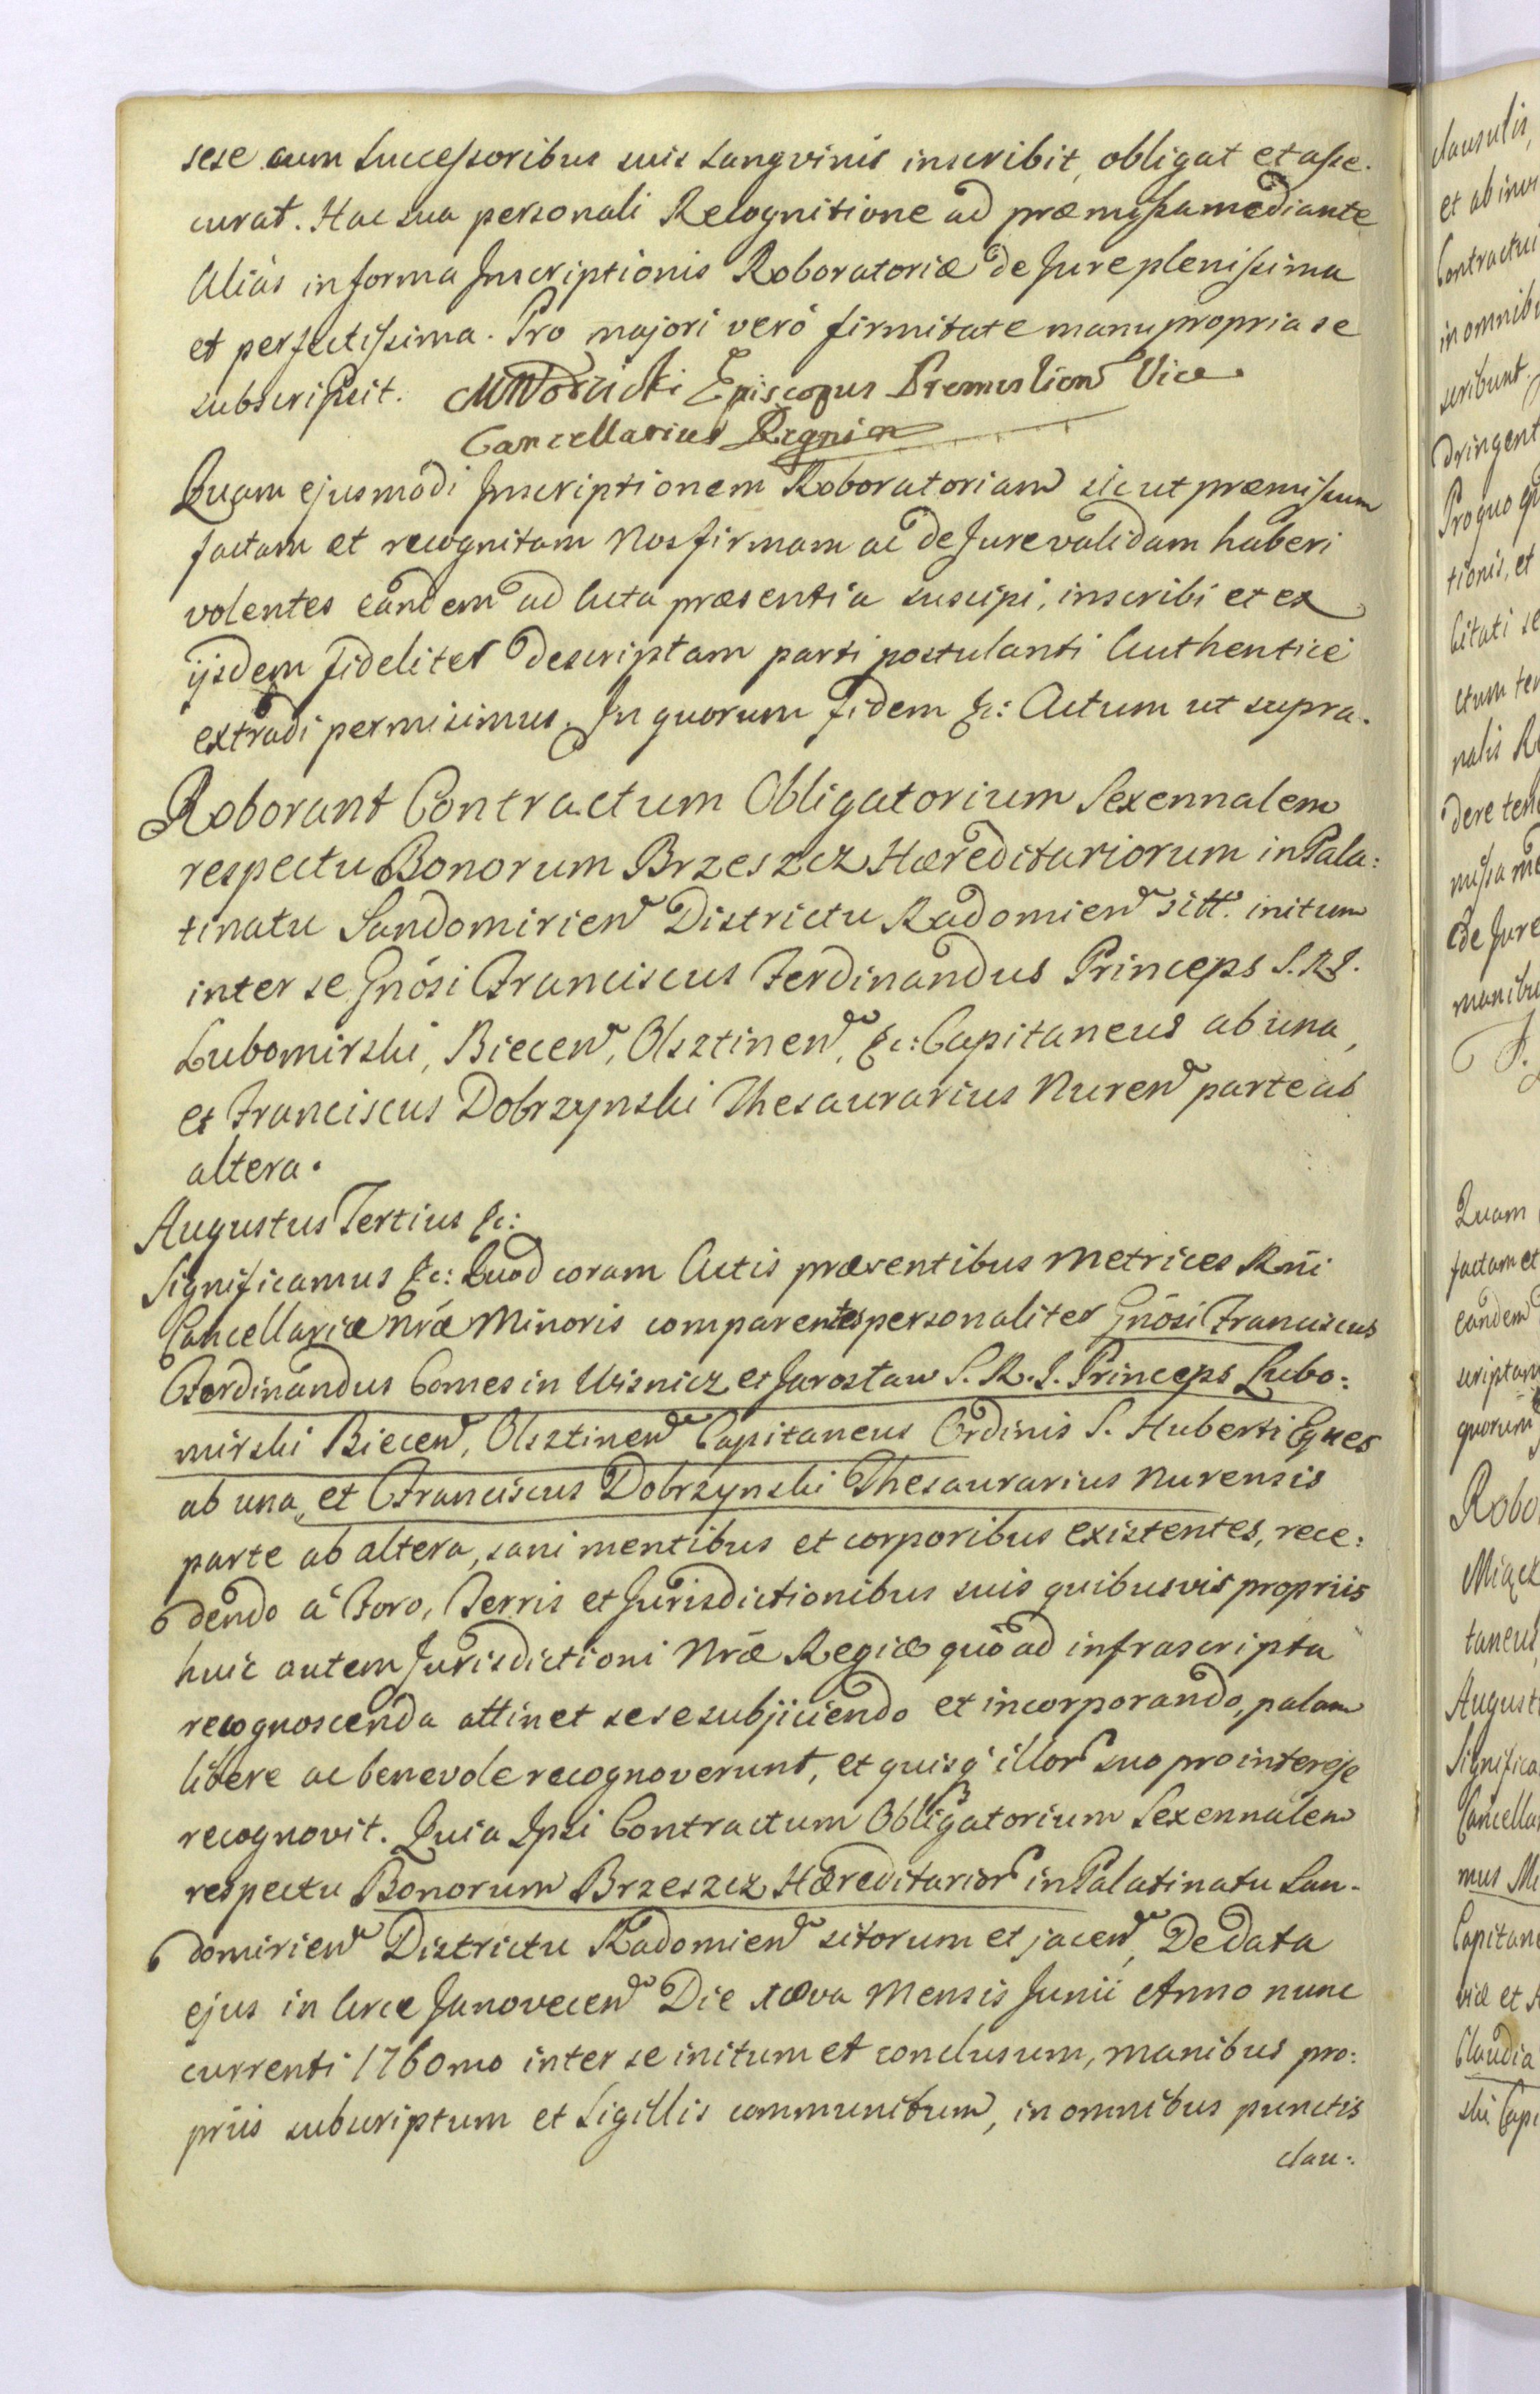 sese cum Successoribus suis Sangvinis inscribit, obligat et asse.
curat. Hac sua personali Recognitione ad præmissa mediante
Aliàs in forma Inscriptionis Roboratoriæ de Jure plenissima
et perfectissima. Pro majori verò firmitate manu propria se
subscripsit. MWodzicki Episcopus Premislien Vice
Cancellarius Regni
Quam ejusmodi Inscriptionem Roboratoriam sicut præmissum
factam et recognitam Nos firmam ac de Jure validam haberi
volentes eandem ad Acta præsentia suscipi, inscribi et ex
ijsdem fideliter descriptam parti postulanti Authenticè
extradi permisimus. In quorum fidem &c: Actum ut supra.
Roborant Contractum Obligatorium Sexennalem
respectu Bonorum Brzeszcz Hæreditariorum in Pala:
tinatu Sandomirien Districtu Radomien sitt. initum
inter se Gnosi Franciscus Ferdinandus Princeps S.R.I.
Lubomirski, Biecen, Olsztinen, &c: Capitaneus ab una,
et Franciscus Dobrzynski Thesaurarius Nuren parte ab
altera.
Augustus Tertius &c:
Significamus &c: Quod coram Actis præsentibus Metrices Rni
Cancellariæ Nræ Minoris comparentes personaliter Gnosi Franciscus
Ferdinandus Comes in Wisnicz et Jarosław S.R.I. Princeps Lubo:
mirski Biecen, Olsztinen Capitaneus Ordinis S. Huberti Eques
ab una, et Franciscus Dobrzynski Thesaurarius Nurensis
parte ab altera, sani mentibus et corporibus existentes, rece:
dendo à Foro, Terris et Jurisdictionibus suis quibusvis propriis
huic autem Jurisdictioni Nræ Regiæ quò ad infrascripta
recognoscenda attinet sese subjiciendo et incorporando, palam
libere ac benevole recognoverunt, et quisq illor suo pro interesse
recognovit. Quia Ipsi Contractum Obligatorium Sexennalem
respectu Bonorum Brzeszcz Hæreditarior in Palatinatu San-
domirien Districtu Radomien sitorum et jacen, De data
ejus in Arce Janovecen Die Mensis Junii Anno nunc
currenti 1760mo inter se initum et conclusum, manibus pro:
priis subscriptum et Sigillis communitum, in omnibus punctis
clau:
clausulis,
Contractui
in omnibus
scribunt.
tionis, et
nalis
de Jure
Quam
factam et
eandem
quorum
taneus
Cancella
Claudia